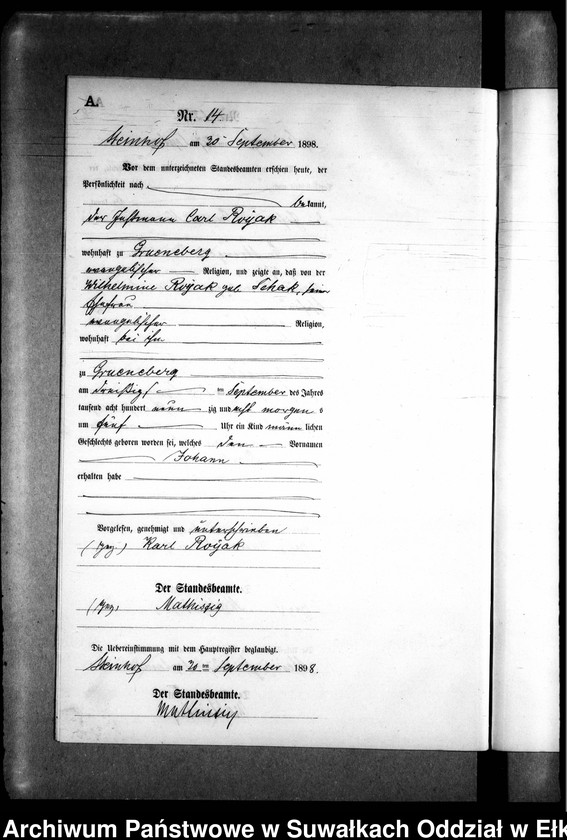 A.
Nr. 14.
Steinhof am 30 September 1898.
Vor dem unterzeichneten Standesbeamten erschien heute, der
Persönlichkeit nach
bekannt,
der Instmann Carl Royak
wohnhaft zu Grueneberg
evangelischer Religion, und zeigte an, daß von der
Wilhelmine Royak geb. Schak, seiner
Ehefrau
evangelischer Religion,
wohnhaft bei ihm
zu Grueneberg
am dreißigsten September des Jahres
tausend acht hundert neun zig und acht morgens
um fünf Uhr ein Kind männlichen
Geschlechts geboren worden sei, welches den Vornamen
Johann
erhalten habe
Vorgelesen, genehmigt und unterschrieben
(gez.) Karl Royak
Der Standesbeamte.
(gez.) Mathiszig
Die Uebereinstimmung mit dem Hauptregister beglaubigt.
Steinhof am 30 ten September 1898.
Der Standesbeamte.
Mathiszig
Archiwum Państwowe w Suwałkach Oddział w Ełk